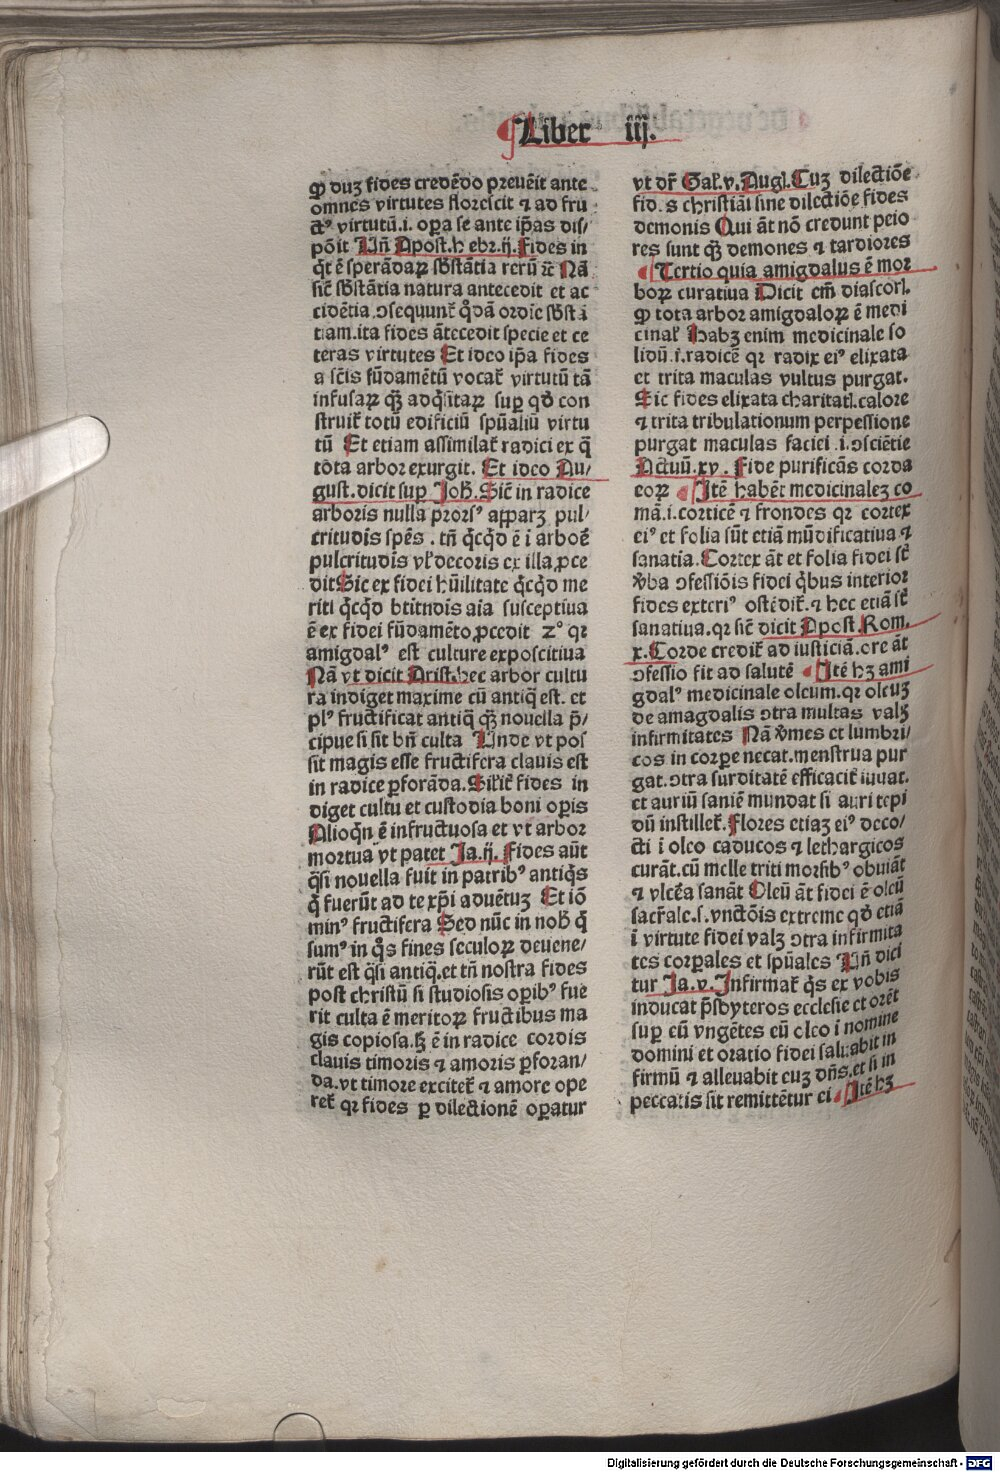 Liber iij.
ꝙ duʒ fides credēdo preuēit ante
omnes virtutes florescit ⁊ ad fru
ctꝰ virtutū.i. oꝑa se ante ip̄as dis/
pōit Un̄ Apost.h ebr.ij. Fides in
q̄t ē sperādaꝝ sb̄stātia rerū ⁊c̄ Nā
sic̄ sb̄stātia natura antecedit et ac
cidētia ↄsequunt̄ q̄dā ordīe sb̄stā
tiam.ita fides ātecedit specie et ce
teras virtutes Et ideo ip̄a fides
a sc̄is fūdamētū vocat̄ virtutū tā
infusaꝝ qʒ̄ adq̄sitaꝝ suꝑ qd̄ con
struit̄ totū edificiū spūaliū virtu
tū Et etiam assimilat̄ radici ex q̄
tota arbor exurgit. Et ideo Au/
gust.dicit suꝑ Joh̄. Sic̄ in radice
arboris nulla prorsꝰ apparʒ pul/
critudis̄ spēs . tn̄ qc̄qd̄ ē ī arboē
pulcritudis̄ vl̄ decoris ex illa ꝓce
dit Sic ex fidei hūilitate qc̄qd̄ me
riti qc̄qd̄ btitudīs aīa susceptiua
ē ex fidei fūdamēto ꝓcedit 2° qꝛ
amigdalꝰ est culture expositiua
Nā vt dicit Arist.hec arbor cultu
ra indiget maxime cū antiq̄ est. et
plꝰ fructificat antiq̄ qʒ̄ nouella p̄/
cipue si sit bn̄ culta Unde vt pos
sit magis esse fructifera clauis est
in radice ꝑforāda. Sil̄it̄ fides in
diget cultu et custodia boni oꝑis
Alioqn̄ ē infructuosa et vt arbor
mortua vt patet Ja.ij. Fides aūt
q̄si nouella fuit in patribꝰ antiq̄s
q̄ fuerūt ad te xp̄i aduētuʒ Et iō
minꝰ fructifera Sed nūc in nob̄ q̄
sumꝰ in q̄s fines seculoꝝ deuene/
rūt est q̄si antiq̄.et tn̄ nostra fides
post christū si studiosis oꝑibꝰ fue
rit culta ē meritoꝝ fructibus ma
gis copiosa.hʒ ē in radice cordis
clauis timoris ⁊ amoris ꝑforan/
da.vt timore excitet̄ ⁊ amore ope
ret̄ qꝛ fides ꝑ dilectionē oꝑatur
vt dr̄ Gal̄.v. Augl̄. Cuʒ dilectiōe
fid.s christiāi sine dilectiōe fides
demonis Qui āt nō credunt peio
res sunt qʒ̄ demones ⁊ tardiores
Tertio quia amigdalus ē mor
boꝝ curatiua Dicit em̄ diascorl.
ꝙ tota arbor amigdaloꝝ ē medi
cinal̄ Habʒ enim medicinale so
lidū.i.radicē qꝛ radix eiꝰ elixata
et trita maculas vultus purgat.
Sic fides elixata charitatl.calore
⁊ trita tribulationum perpessione
purgat maculas faciei .i.ↄsciētie
Actuū.xv. Fide purificās corda
eoꝝ Itē habēt medicinaleʒ co
mā.i.corticē ⁊ frondes qꝛ cortex
eiꝰ et folia sūt etiā mūdificatiua ⁊
sanatia. Cortex āt et folia fidei st̄
v̄ba ↄfessiōis fidei q̄bus interior
fides exteriꝰ ostēdit̄.⁊ hec etiā st̄
sanatiua.qꝛ sic̄ dicit Apost. Rom.
x. Corde credit̄ ad iusticiā.ore āt
ↄfessio fit ad salutē Itē hʒ ami
gdalꝰ medicinale oleum.qꝛ oleuʒ
de amagdalis ↄtra multas valʒ
infirmitates Nā v̄mes et lumbri/
cos in corꝑe necat.menstrua pur
gat.ↄtra surditatē efficacit̄ iuuat.
et auriū saniē mundat si auri tepi
dū instillet̄. Flores etiaʒ eiꝰ deco/
cti ī oleo caducos ⁊ lethargicos
curāt.cū melle triti morsibꝰ obuiāt
⁊ vlcēa sanāt Oleū āt fidei ē oleū
sacr̄ale.s.vnctōis extreme qd̄ etiā
ī virtute fidei valʒ ↄtra infirmita
tes corꝑales et spūales Un̄ dici
tur Ja.v. Infirmat̄ q̄s ex vobis
inducat p̄sbyteros ecclesie et orēt
suꝑ eū vngētes eū oleo i nomine
domini et oratio fidei saluabit in
firmū ⁊ alleuabit euʒ dn̄s.et si in
peccatis sit remittētur ei Itē hʒ
Digitalisierung gefördert durch die Deutsche Forschungsgemeinschaft - DFG